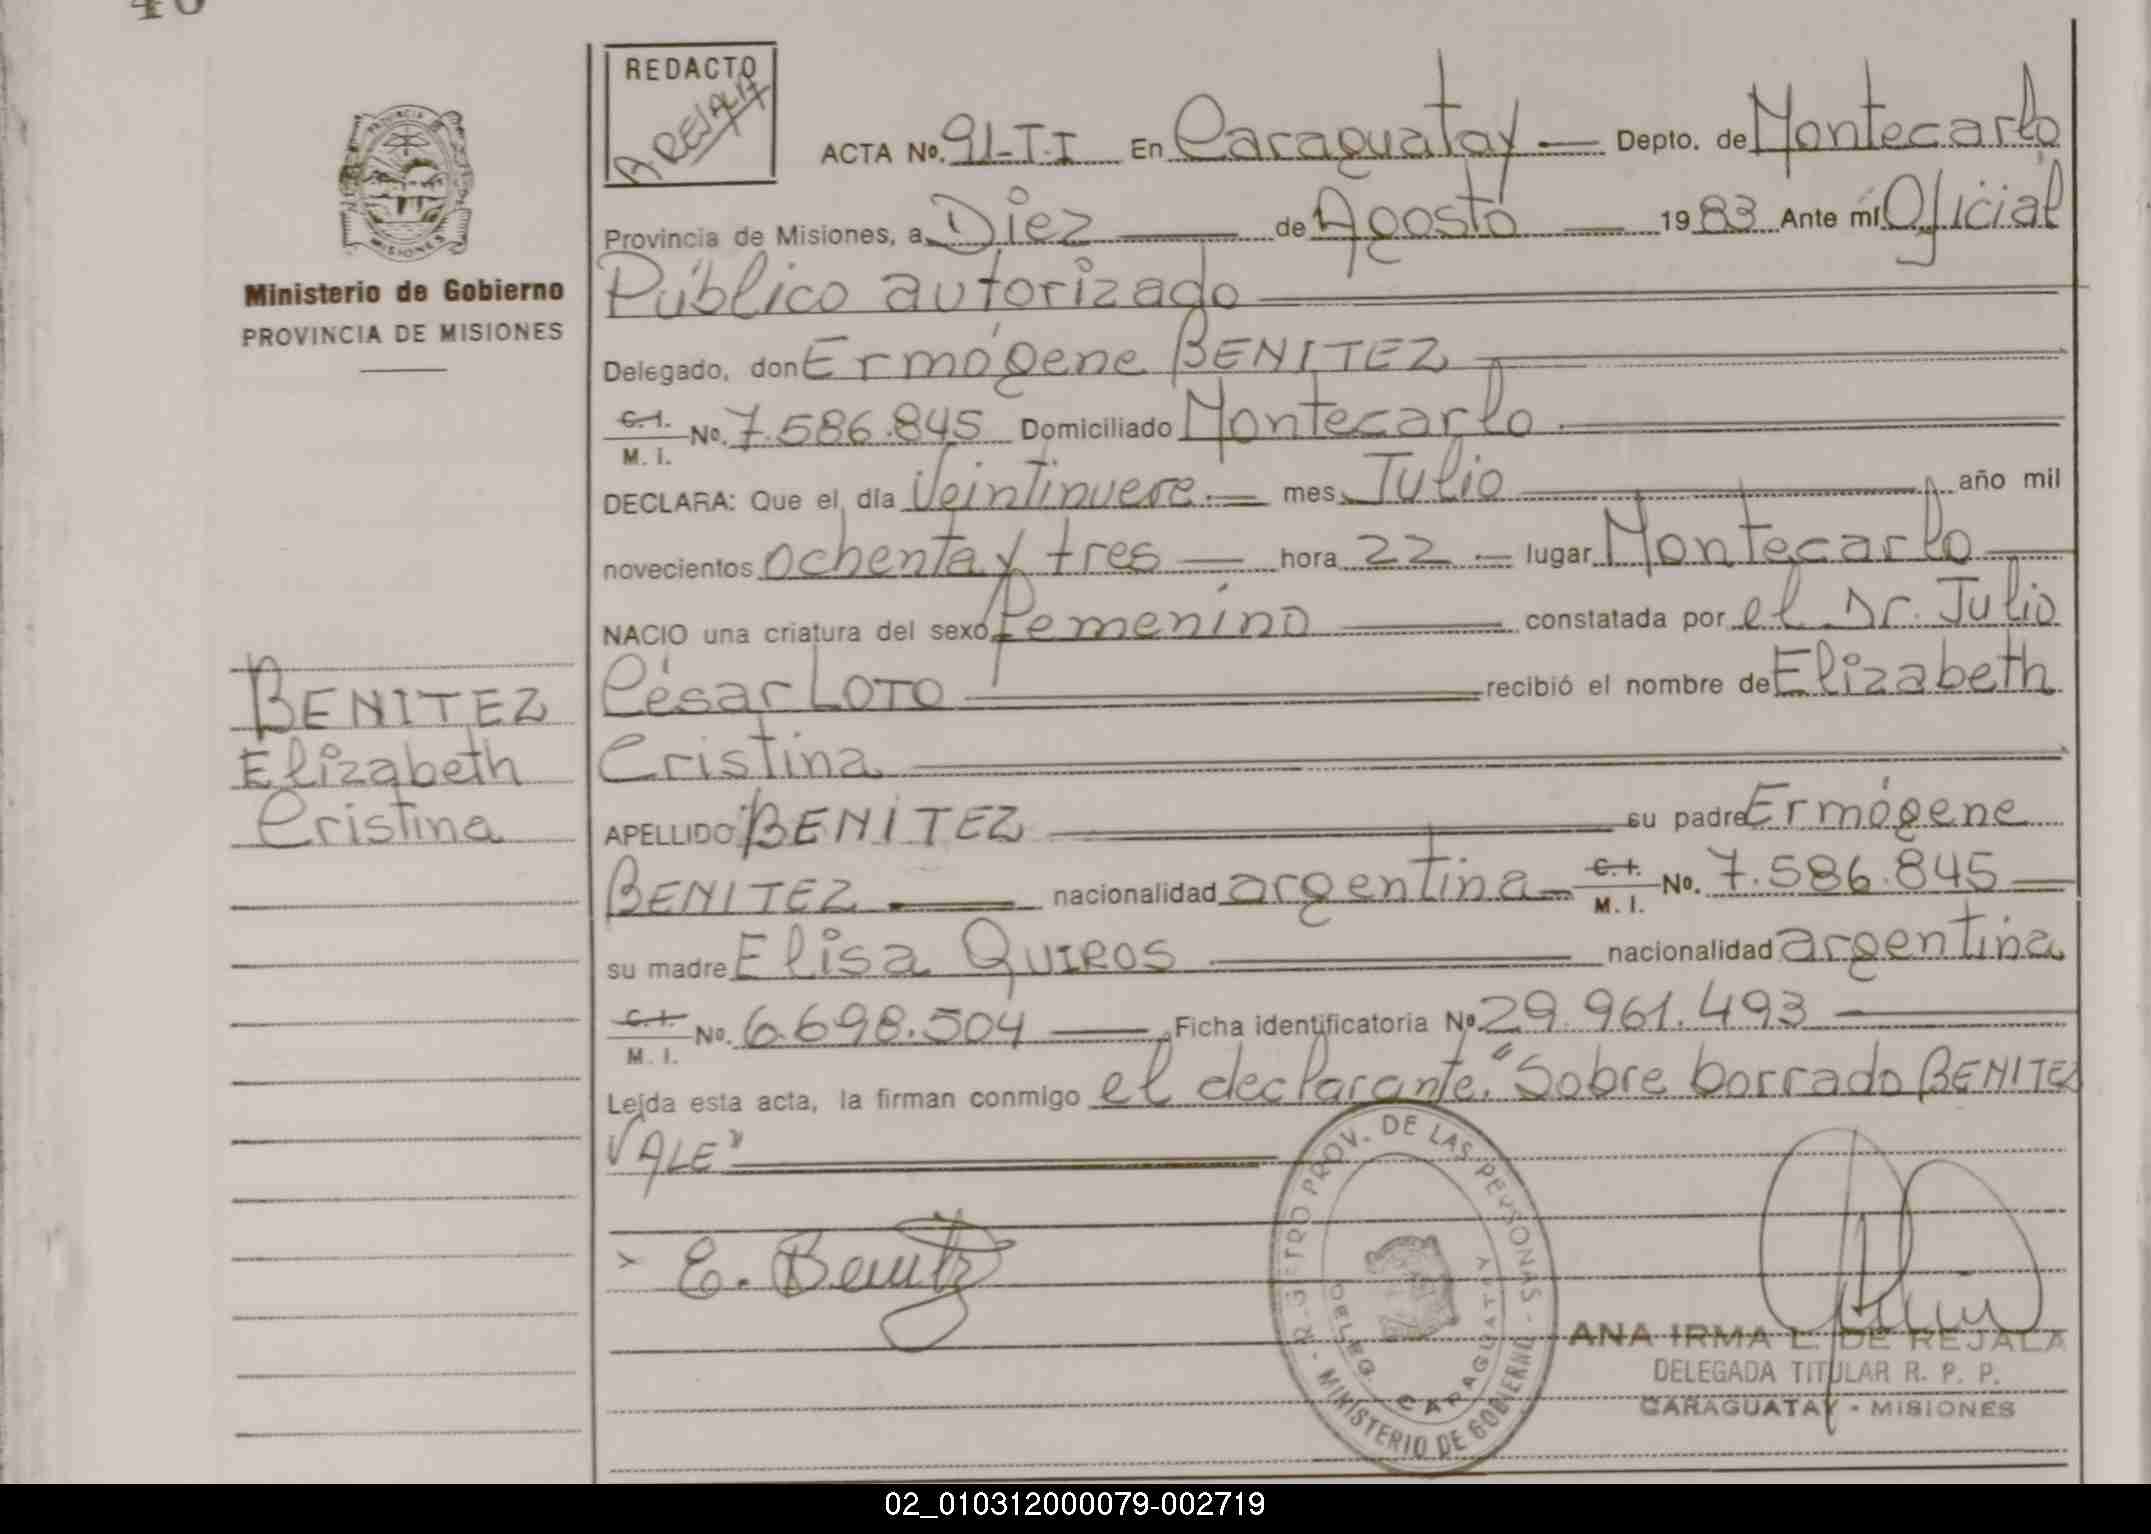 40
REDACTO
A REJALA
ACTA No. 91-T-I En Caraguatay — Depto. de Montecarlo
Provincia de Misiones, a Diez — de Agosto — 1983 Ante mí Oficial
Ministerio de Gobierno
PROVINCIA DE MISIONES
Público autorizado
Delegado, don Ermógene BENITEZ
C.I. M.I. No. 7.586.845 Domiciliado Montecarlo
DECLARA: Que el día Veintinueve — mes Julio — año mil
novecientos ochenta y tres — hora 22 — lugar Montecarlo —
NACIO una criatura del sexo femenino — constatada por el Dr. Julio
César LOTO — recibió el nombre de Elizabeth
Cristina
BENITEZ
Elizabeth
Cristina
APELLIDO BENITEZ — su padre Ermógene
BENITEZ — nacionalidad argentina — C.I. M.I. No. 7.586.845 —
su madre Elisa QUIROS — nacionalidad argentina
C.I. M.I. No. 6.698.504 — Ficha identificatoria No. 29.961.493 —
Leída esta acta, la firman conmigo el declarante. "Sobre borrado BENITEZ
VALE"
E. Benitz
R-GISTRO PROV. DE LAS PERSONAS - MINISTERIO DE GOBIERNO
DELEG. CARAGUATAY
ANA IRMA L. DE REJALA
DELEGADA TITULAR R. P. P.
CARAGUATAY - MISIONES
02_010312000079-002719